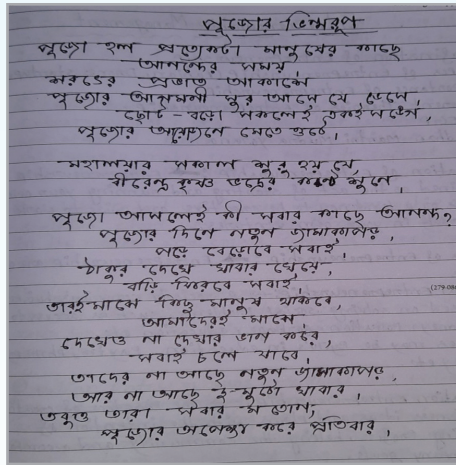 পুজোর ভিন্নরূপ
পুজো হল প্রত্যেকটা মানুষের কাছে
আনন্দের সময়
শরতের প্রভাত আকাশে
পুজোর আগমনী সুর আসে যে ভেসে,
ছোট - বড়ো সকলেই একই সঙ্গে,
পুজোর আয়োজনে মেতে ওঠে।
মহালয়ার সকাল শুরু হয় যে,
বীরেন্দ্র কৃষ্ণ ভদ্রের কণ্ঠ শুনে,
পুজো আসলেই কী সবার কাছে আনন্দ?
পুজোর দিনে নতুন জামাকাপড়,
পরে বেড়োবে সবাই,
ঠাকুর দেখে খাবার খেয়ে,
বাড়ি ফিরবে সবাই,
তারই মাঝে কিছু মানুষ থাকবে,
আমাদেরই মাঝে
দেখেও না দেখার ভান করে,
সবাই চলে যাবে,
তাদের না আছে নতুন জামাকাপড়,
আর না আছে দু-মুঠো খাবার,
তবুও তারা সবার মতোন,
পুজোর অপেক্ষা করে প্রতিবার,